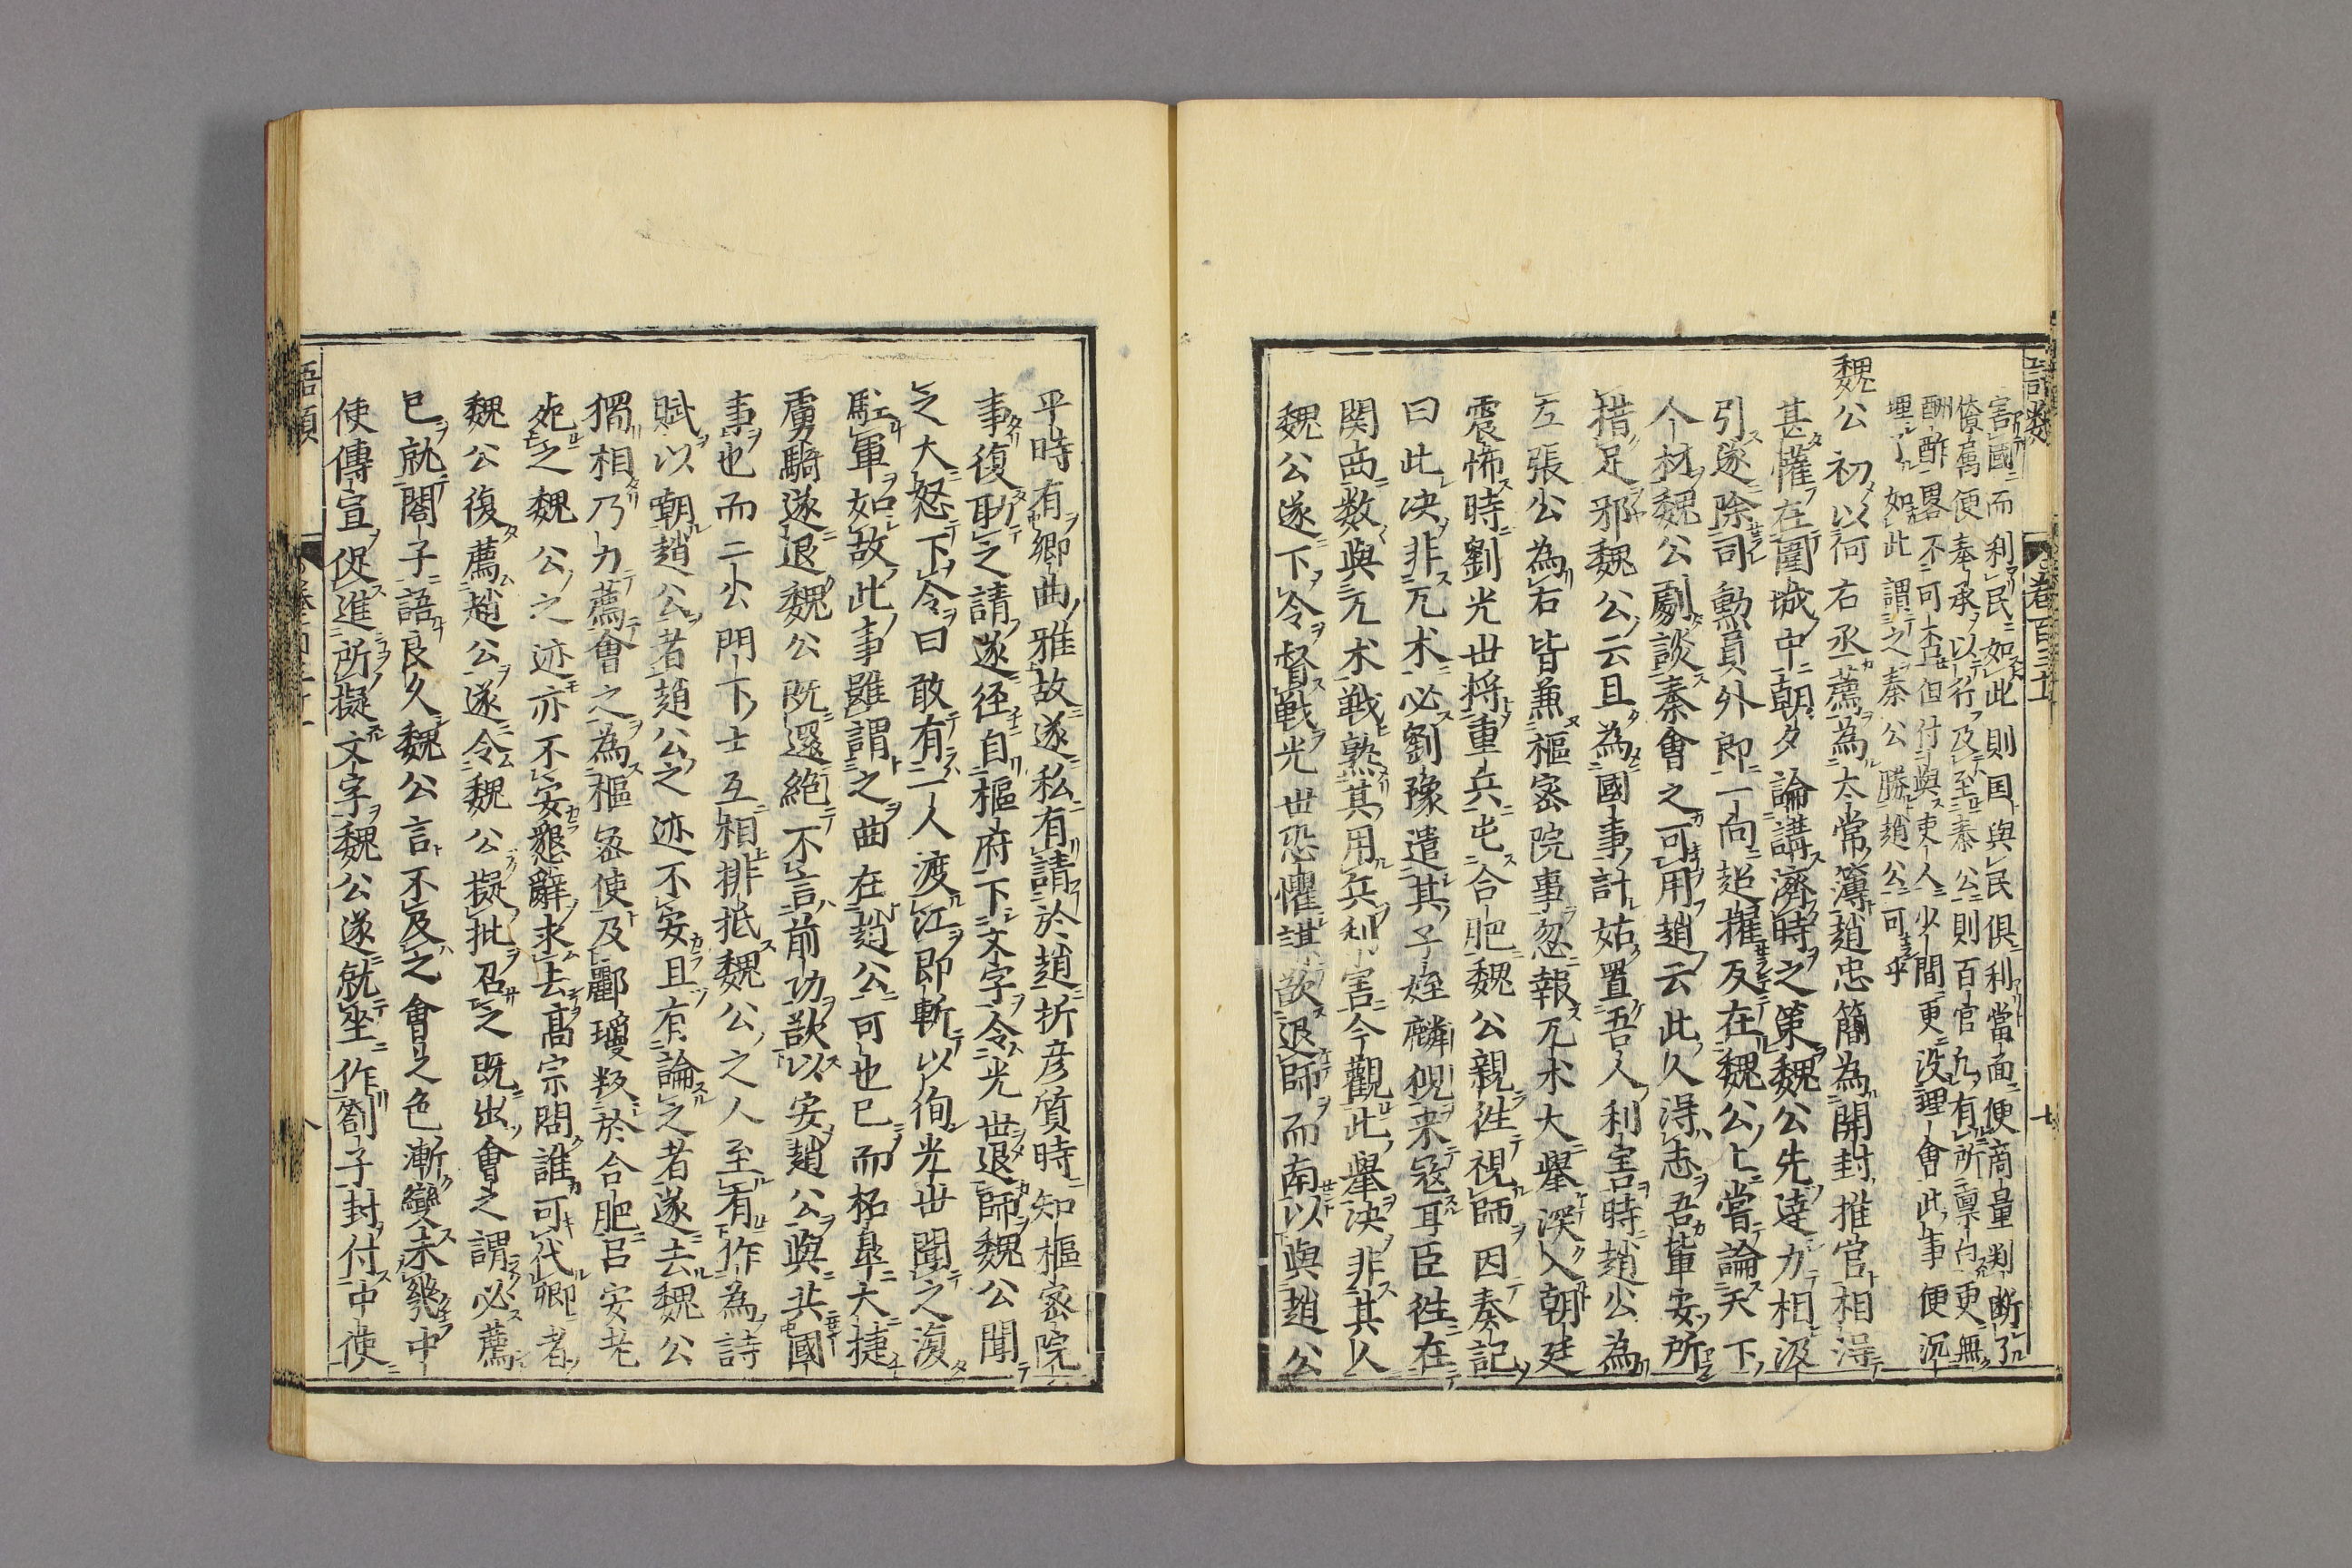 語類 卷百三十一 七
害國而利民如此則国與民俱利當面便商量判断了
僚寫便奉承以行及至秦公則百官凡有所禀白更無
酬酢畧不可否但付與吏人少間更没理會此事便沉
埋了如此謂之秦公勝趙公可乎
魏公初以何右丞薦為太常簿趙忠簡為開封推官相得
甚懽在圍城中朝夕論講濟時之策魏公先達力相汲
引遂除司勲員外即一向超擢反在魏公上嘗論天下
人材魏公劇談秦會之可用趙云此人得志吾輩安所
措足邪魏公云且為國事計姑置吾人利害時趙公為
左張公為右皆兼樞密院事忽報兀术大舉深入朝廷
震怖時劉光世将重兵屯合肥魏公親徃視師因奏記
曰此决非兀术必劉豫遣其子姪麟猊来冦耳臣徃在
関西数與兀术戦熟其用兵利害今觀此舉决非其人
魏公遂下令督戦光世恐懼謀欲退師而南以與趙公
平時有鄉曲雅故遂私有請於趙折彦質時知樞密院
事復助之請遂徑自樞府下文字令光世退師魏公聞
之大怒下令曰敢有一人渡江即斬以徇光世聞之復
駐軍如故此事雖謂之曲在趙公可也已而柘皐大捷
虜騎遂退魏公既還絶不言前功欲以安趙公與共國
事也而二公門下士互相排抵魏公之人至有作為詩
賦以朝趙公者趙公之迹不安且有論之者遂去魏公
獨相乃力薦會之為樞密使及酈瓊叛於合肥吕安老
死之魏公之迹亦不安懇辭求去高宗問誰可代卿者
魏公復薦趙公遂令魏公擬批召之既出會之謂必薦
已就閤子語良久魏公言不及之會之色漸變未幾中
使傳宣促進所擬文字魏公遂就坐作劄子封付中使
語類 八